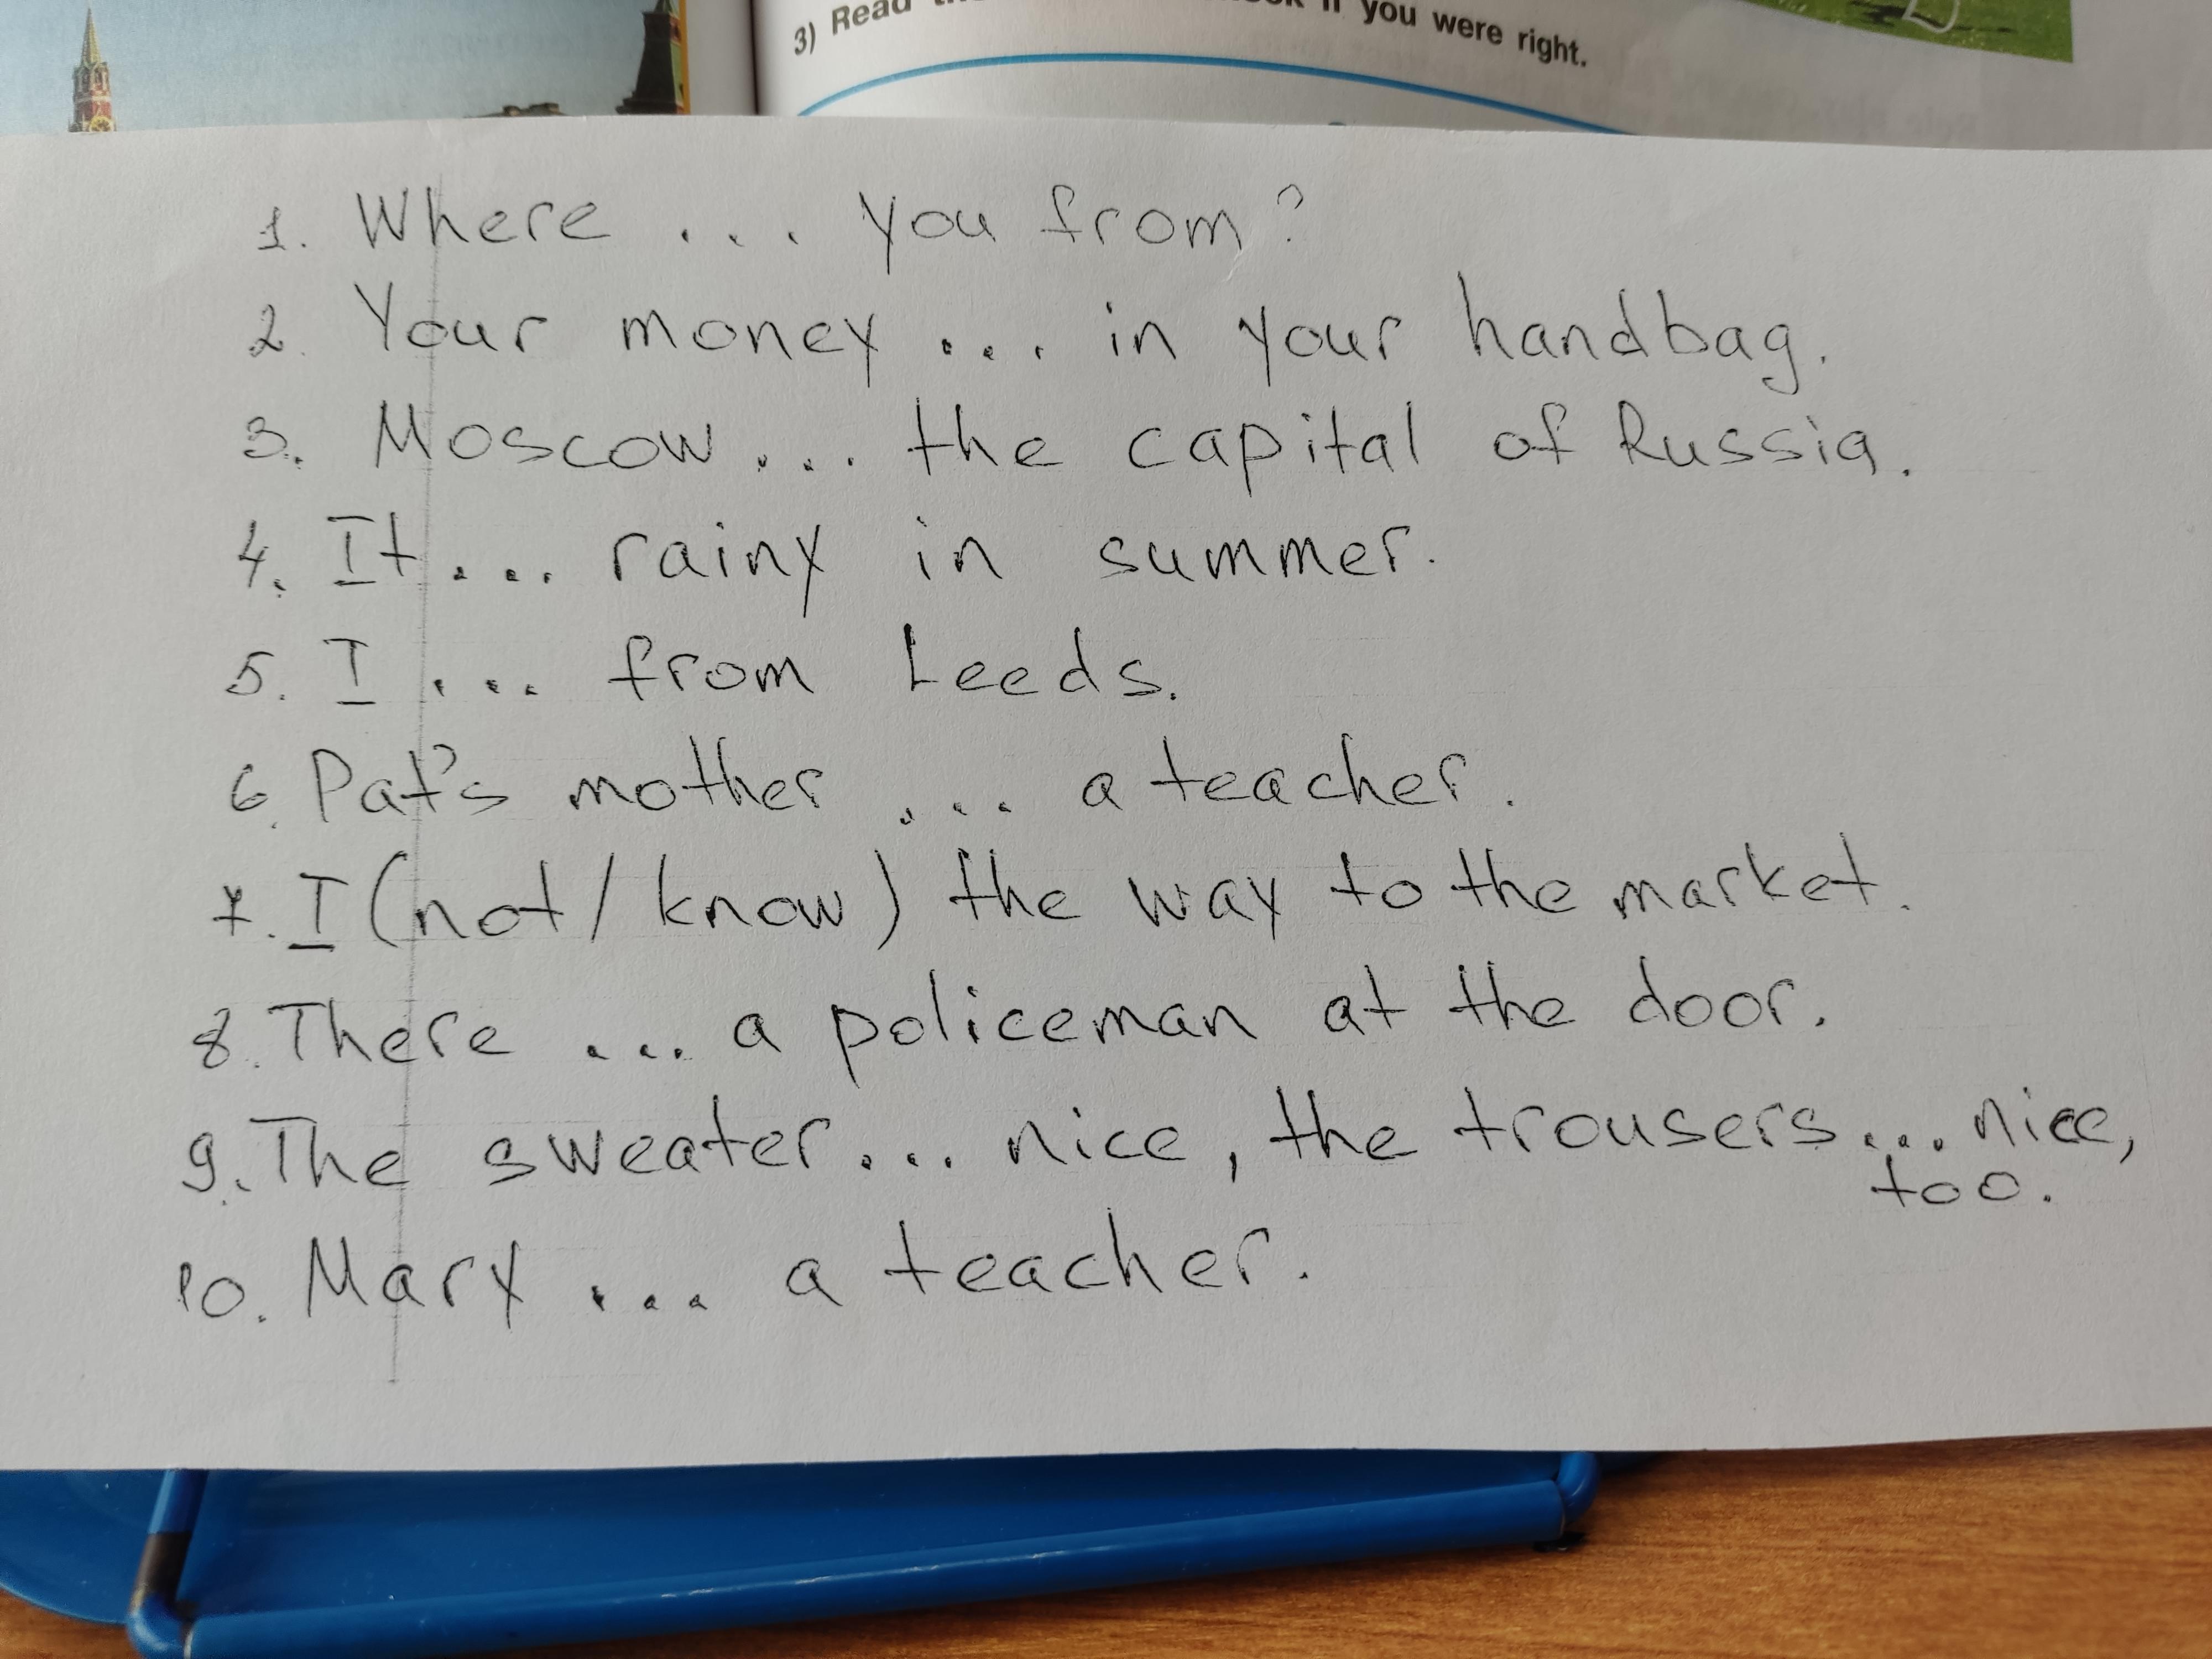 3) Read you were right.
1. Where ... you from?
2. Your money ... in your handbag.
3. Moscow ... the capital of Russia.
4. It ... rainy in summer.
5. I ... from Leeds.
6. Pat's mother ... a teacher.
7. I (not/know) the way to the market.
8. There ... a policeman at the door.
9. The sweater ... nice, the trousers ... nice,
too.
10. Mary ... a teacher.